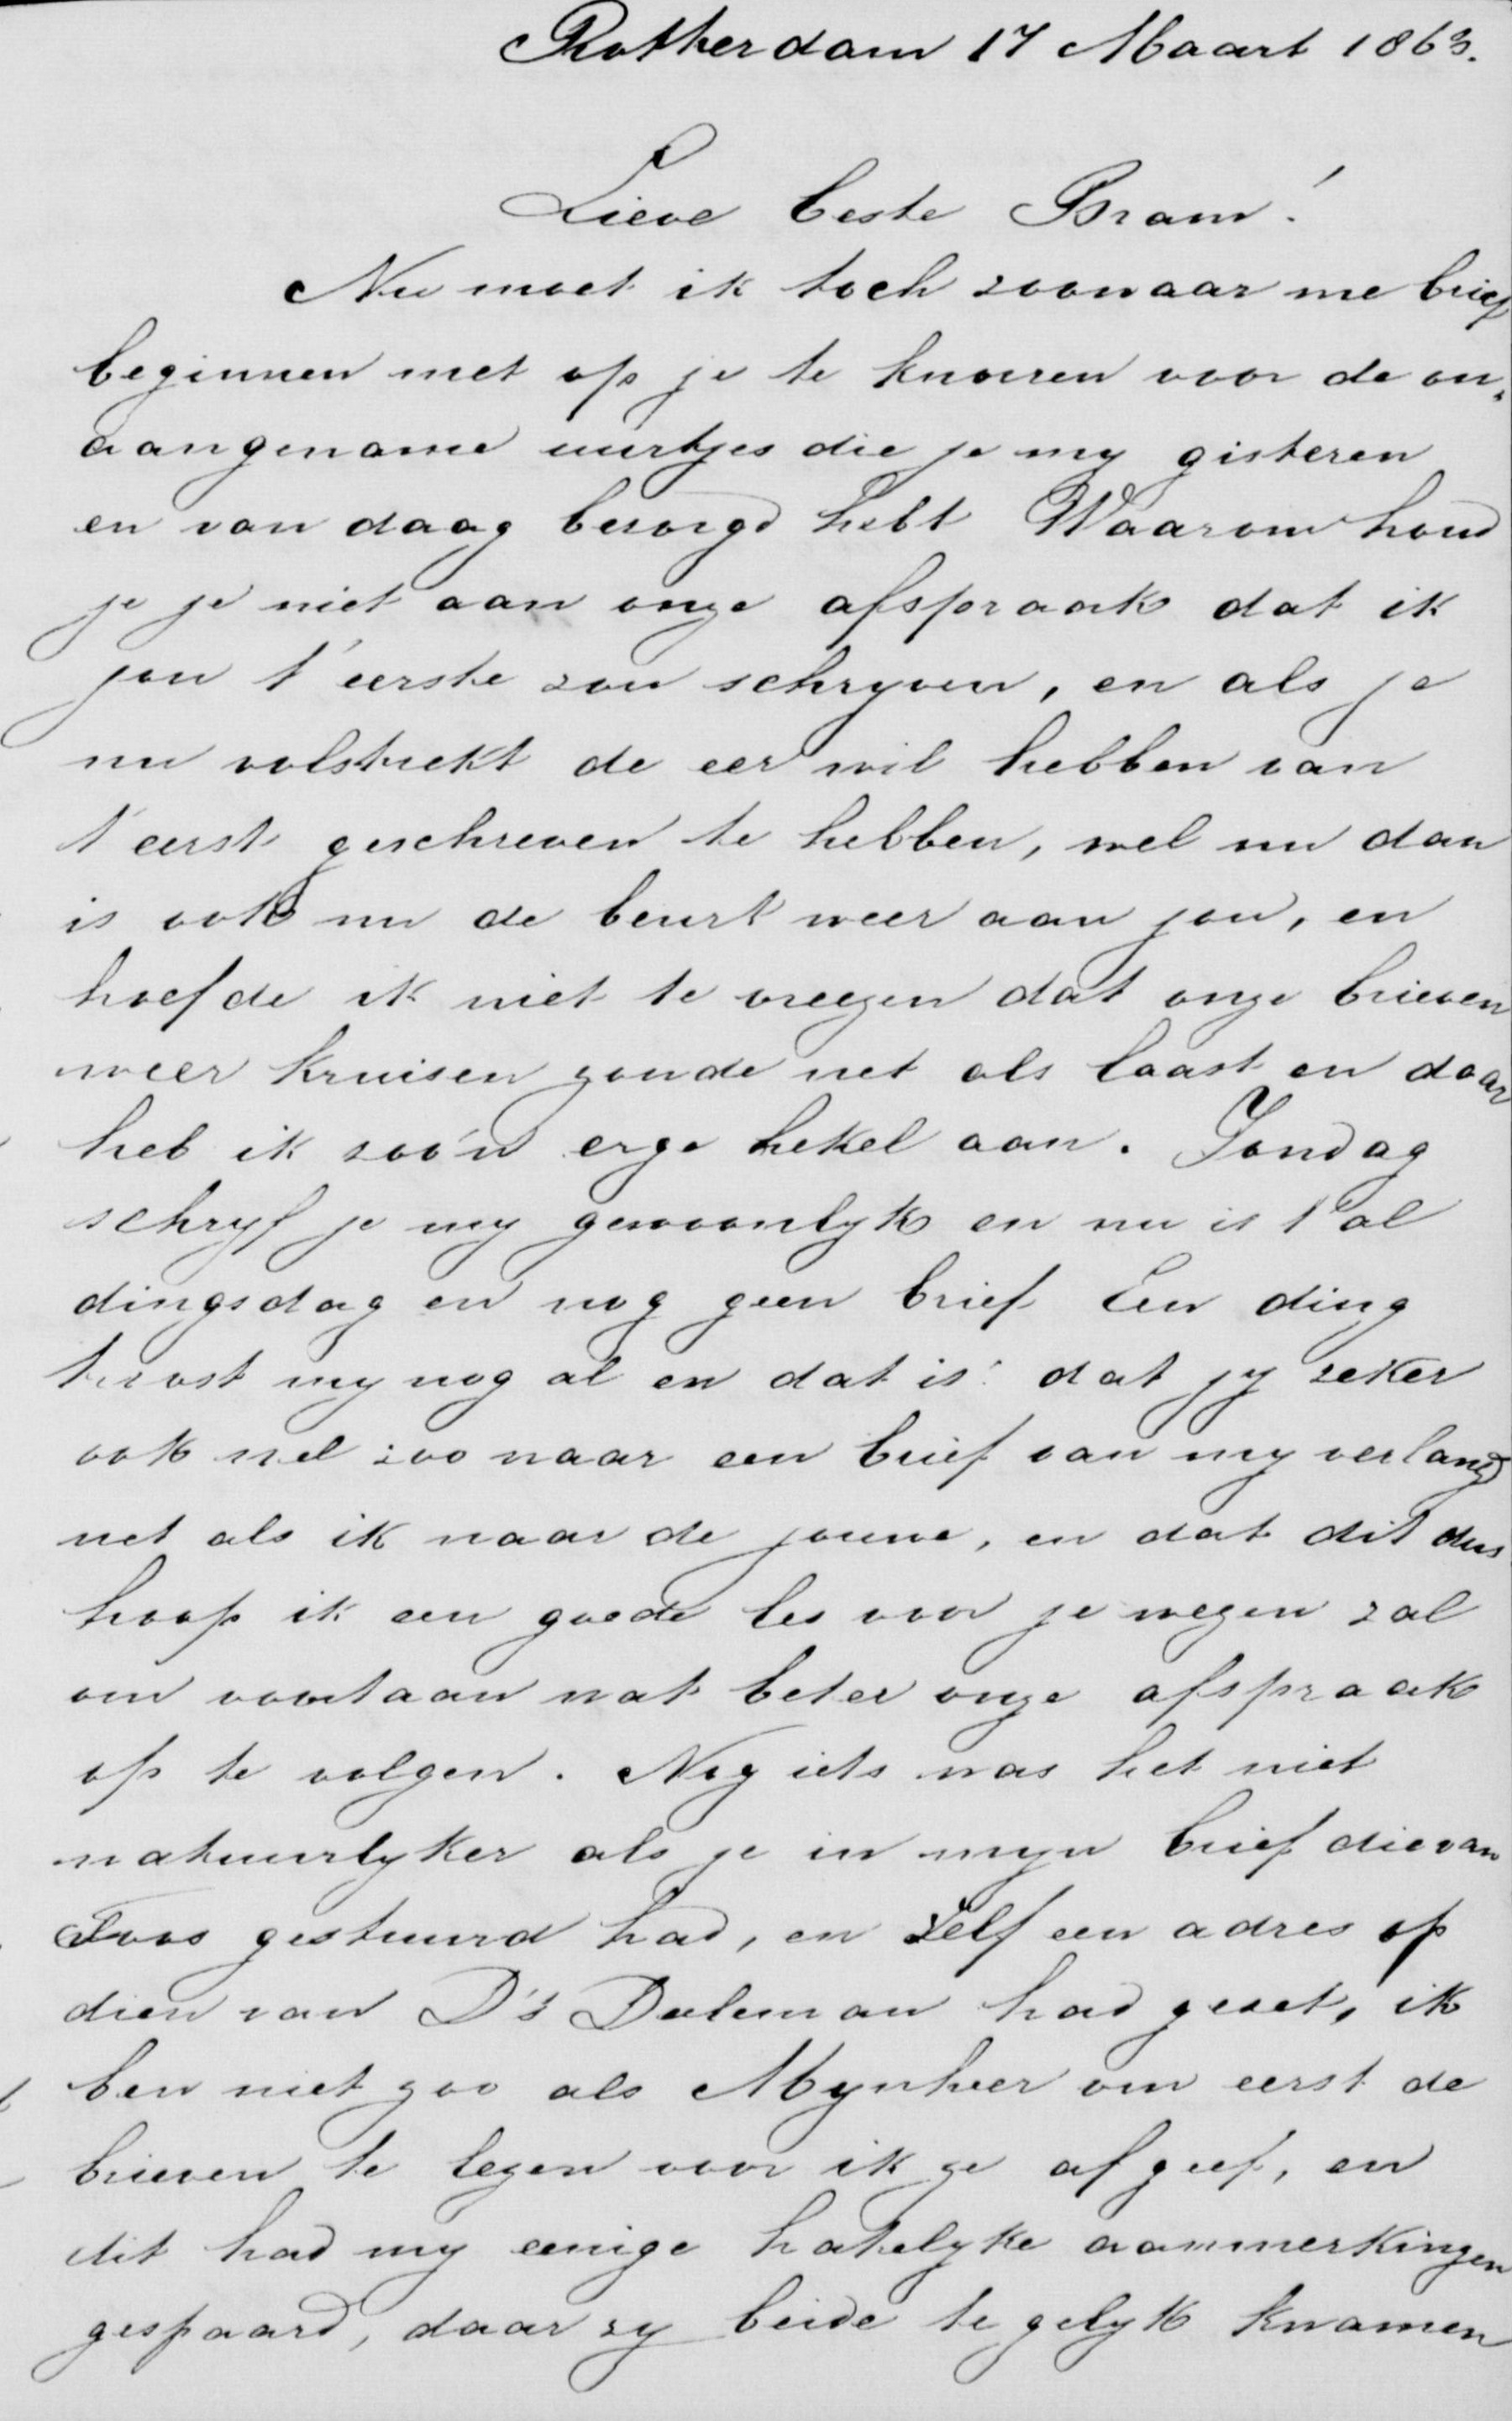 Rotterdam 17 Maart 1863.
Lieve beste Bram!
Nu moet ik toch zoowaar me brief
beginnen met op je te knorren voor de on„
aangename uurtjes die je my gisteren
en van daag bezorgd hebt Waarom houd
je je niet aan onze afspraak dat ik
jou t'eerste zou schryven, en als je
nu volstrekt de eer wil hebben van
t'eerst geschreven te hebben, wel nu dan
is ook nu de beurt weer aan jou, en
hoefde ik niet te vreezen dat onze brieven
weer kruisen zoude net als laast en daar
heb ik zoo'n erge hekel aan. Zondag
schryf je my gewoonlyk en nu is t'al
dingsdag en nog geen brief Een ding
troost my nog al en dat is: dat jy zeker
ook wel zoo naar een brief van my verlangd
net als ik naar de jouwe, en dat dit dus
hoop ik een goede les voor je wezen zal
om voortaan wat beter onze afspraak
op te volgen. Nog iets was het niet
natuurlyker als je in myn brief die van
Toos gestuurd had, en zelf een adres op
dien van D's Daleman had gezet, ik
ben niet zoo als Mynheer om eerst de
brieven te lezen voor ik ze afgeef, en
dit had my eenige hatelyke aanmerkingen
gespaard, daar zy beide te gelyk kwamen